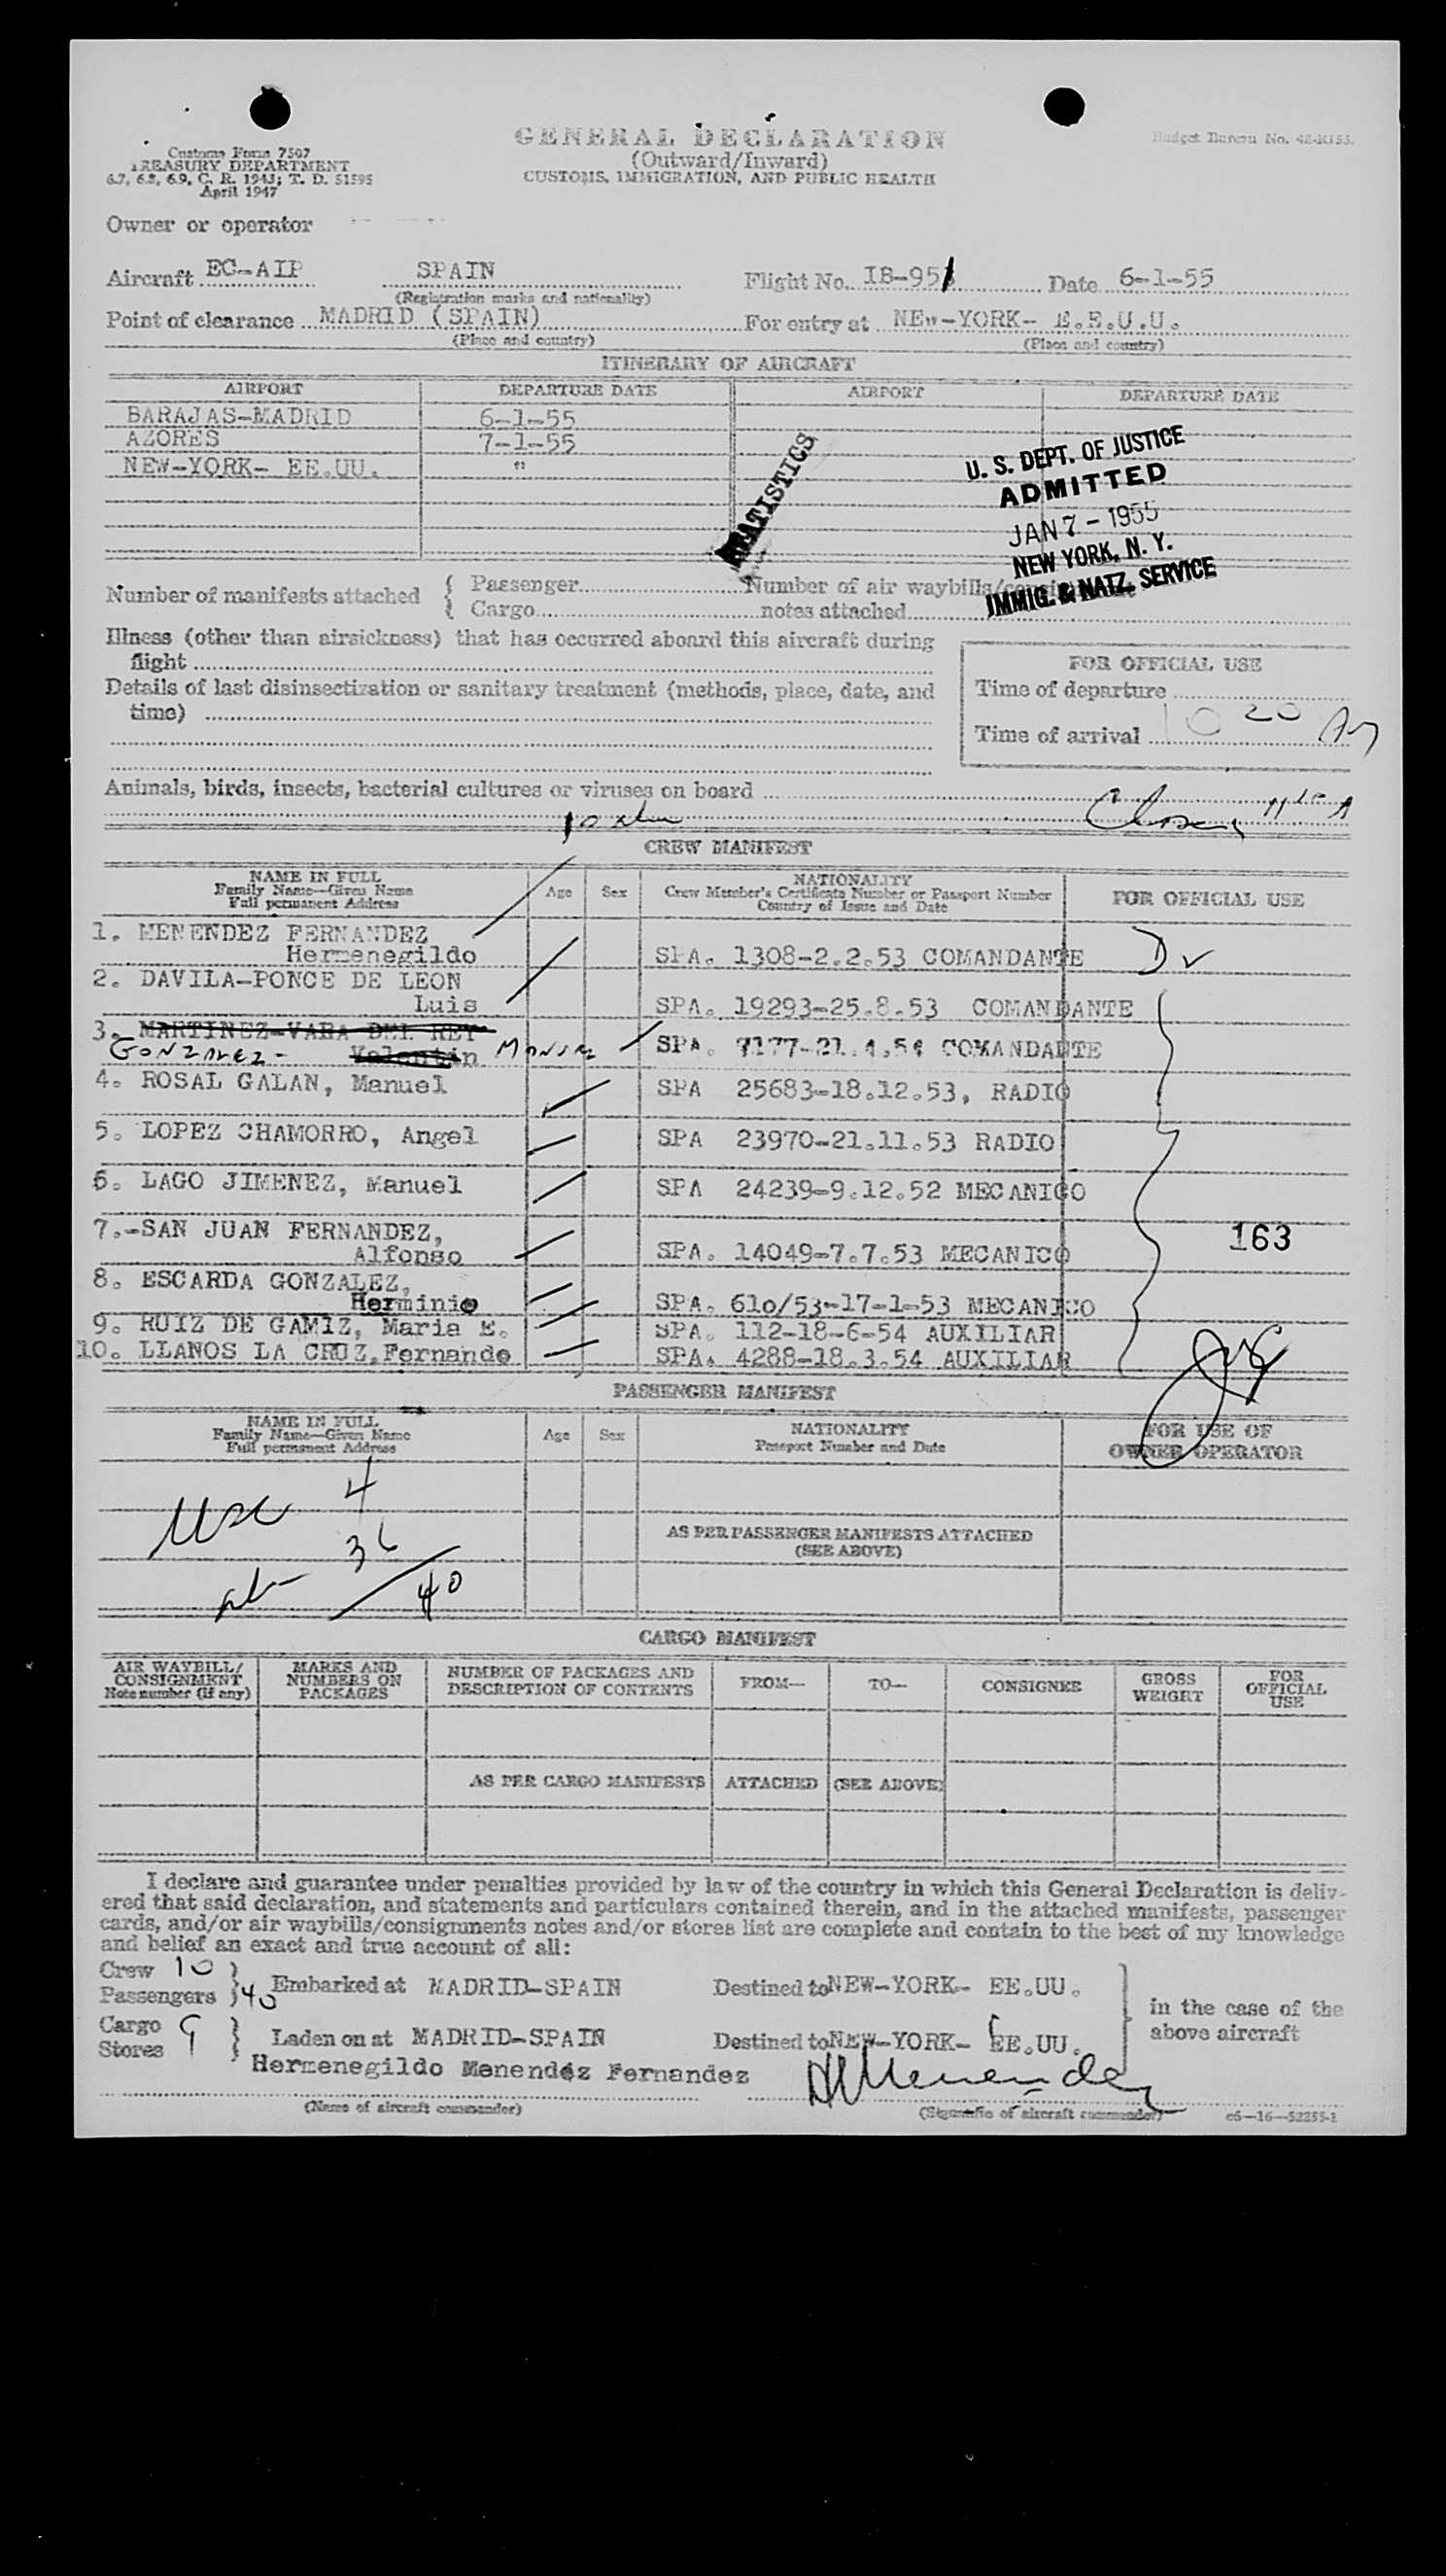 GENERAL DECLARATION
(Outward/Inward)
CUSTOMS, IMMIGRATION, AND PUBLIC HEALTH
Customs Form 7507
TREASURY DEPARTMENT
6.7, 6.8, 6.9, C. R. 1943; T. D. 51595
April 1947
Budget Bureau No. 48-R155.
Owner or operator
Aircraft EC-AIP SPAIN Flight No. IB-951 Date 6-1-55
(Registration marks and nationality)
Point of clearance MADRID (SPAIN) For entry at NEw-YORK- E.E.U.U.
(Place and country) (Place and country)
ITINERARY OF AIRCRAFT
AIRPORT DEPARTURE DATE AIRPORT DEPARTURE DATE
BARAJAS-MADRID 6-1-55
AZORES 7-1-55
NEW-YORK- EE.UU. "
STATISTICS
U. S. DEPT. OF JUSTICE
ADMITTED
JAN 7 - 1955
NEW YORK, N. Y.
IMMIG. & NATZ. SERVICE
Number of manifests attached { Passenger Number of air waybills/
{ Cargo notes attached
Illness (other than airsickness) that has occurred aboard this aircraft during
flight
Details of last disinsectization or sanitary treatment (methods, place, date, and
time)
FOR OFFICIAL USE
Time of departure
Time of arrival 10 20 Am
Animals, birds, insects, bacterial cultures or viruses on board
10
CREW MANIFEST
NAME IN FULL
Family Name—Given Name
Full permanent Address
Age Sex
NATIONALITY
Crew Member's Certificate Number or Passport Number
Country of Issue and Date
FOR OFFICIAL USE
1. MENENDEZ FERNANDEZ
Hermenegildo SPA. 1308-2.2.53 COMANDANTE
2. DAVILA-PONCE DE LEON
Luis SPA. 19293-25.8.53 COMANDANTE
3. MARTINEZ-VARA DEL REY
GONZALEZ- Valentin SPA. 7177-21.4.54 COMANDANTE
4. ROSAL GALAN, Manuel SPA 25683-18.12.53, RADIO
5. LOPEZ CHAMORRO, Angel SPA 23970-21.11.53 RADIO
6. LAGO JIMENEZ, Manuel SPA 24239-9.12.52 MECANICO
7.-SAN JUAN FERNANDEZ,
Alfonso SPA. 14049-7.7.53 MECANICO
163
8. ESCARDA GONZALEZ,
Herminio SPA. 610/53-17-1-53 MECANICO
9. RUIZ DE GAMIZ, Maria E. SPA. 112-18-6-54 AUXILIAR
10. LLANOS LA CRUZ, Fernando SPA. 4288-18.3.54 AUXILIAR
PASSENGER MANIFEST
NAME IN FULL
Family Name—Given Name
Full permanent Address
Age Sex
NATIONALITY
Passport Number and Date
FOR USE OF
OWNER OPERATOR
USC 4
36
40
AS PER PASSENGER MANIFESTS ATTACHED
(SEE ABOVE)
CARGO MANIFEST
AIR WAYBILL/
CONSIGNMENT
Note number (if any)
MARKS AND
NUMBERS ON
PACKAGES
NUMBER OF PACKAGES AND
DESCRIPTION OF CONTENTS
FROM— TO— CONSIGNEE
GROSS
WEIGHT
FOR
OFFICIAL
USE
AS PER CARGO MANIFESTS ATTACHED (SEE ABOVE)
I declare and guarantee under penalties provided by law of the country in which this General Declaration is deliv-
ered that said declaration, and statements and particulars contained therein, and in the attached manifests, passenger
cards, and/or air waybills/consignments notes and/or stores list are complete and contain to the best of my knowledge
and belief an exact and true account of all:
Crew 10 }
Passengers } 40 Embarked at MADRID-SPAIN Destined to NEW-YORK- EE.UU.
in the case of the
above aircraft
Cargo }
Stores } Laden on at MADRID-SPAIN Destined to NEW-YORK- EE.UU.
Hermenegildo Menendez Fernandez HMenendez
(Name of aircraft commander) (Signature of aircraft commander) c6—16—52255-1